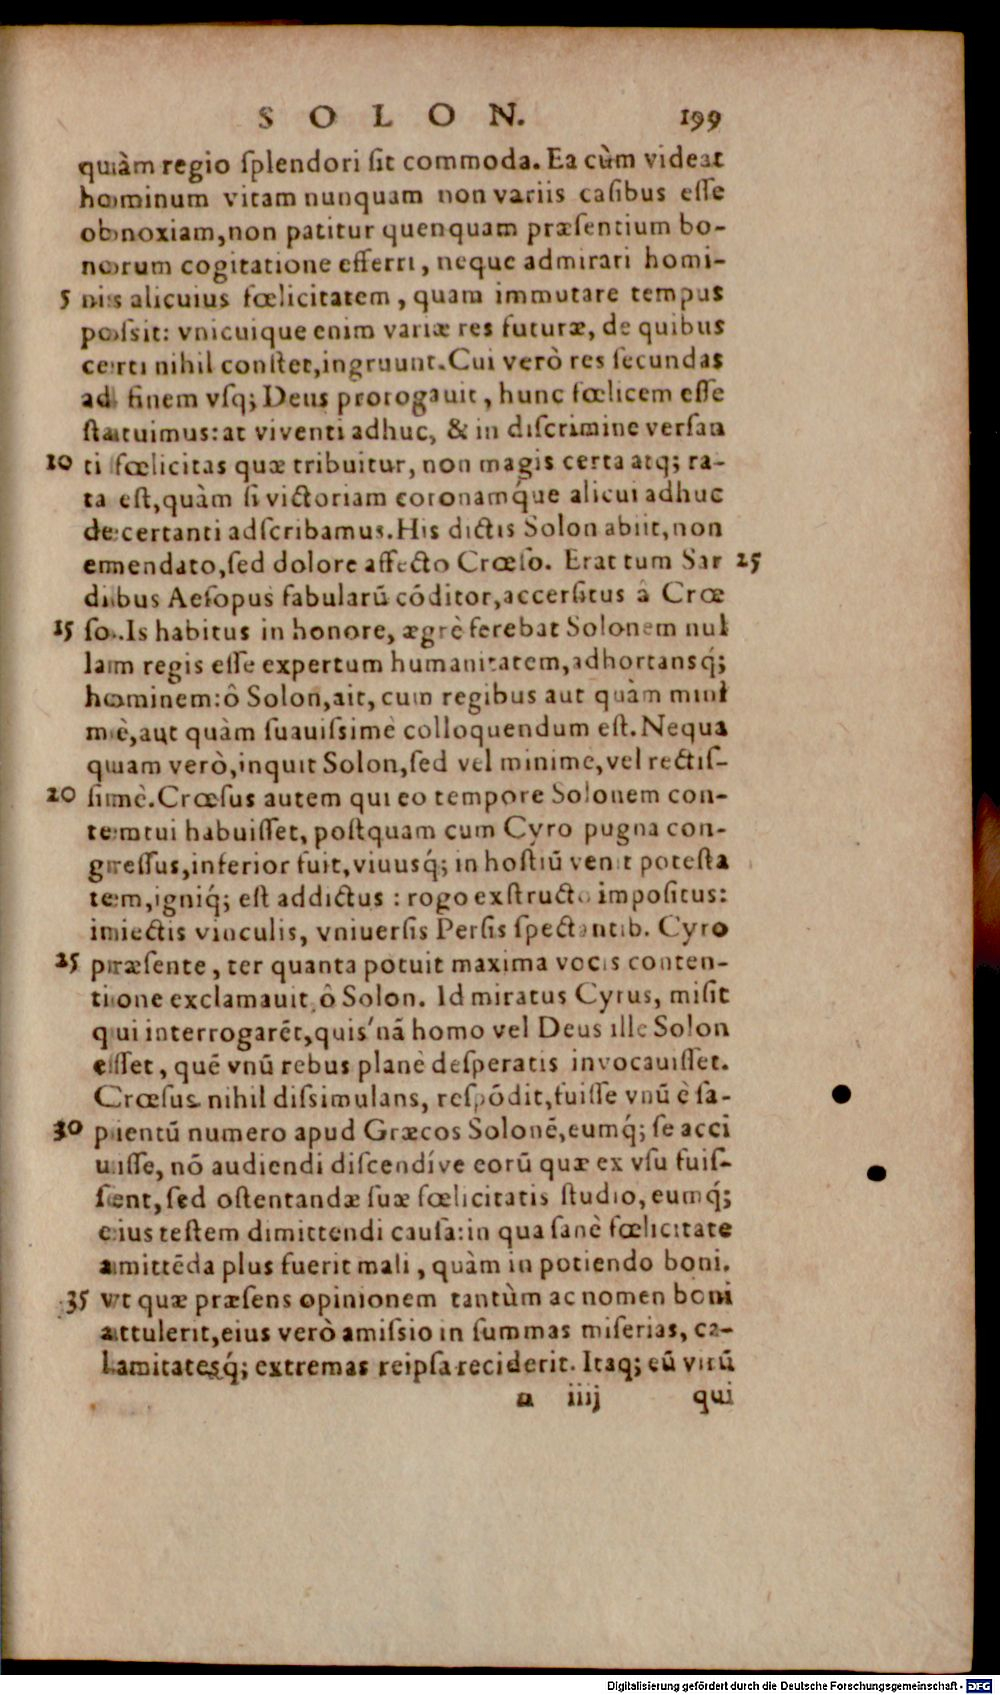 SOLON. 199
quàm regio splendori sit commoda. Ea cùm videat
hominum vitam nunquam non variis casibus esse
obnoxiam, non patitur quenquam præsentium bo-
norum cogitatione efferri, neque admirari homi-
5 nis alicuius fœlicitatem, quam immutare tempus
possit: vnicuique enim variæ res futuræ, de quibus
certi nihil constet, ingruunt. Cui verò res secundas
ad finem vsq; Deus prorogauit, hunc fœlicem esse
statuimus: at viventi adhuc, & in discrimine versan
10 ti fœlicitas quæ tribuitur, non magis certa atq; ra-
ta est, quàm si victoriam coronamq́ue alicui adhuc
decertanti adscribamus. His dictis Solon abiit, non
emendato, sed dolore affecto Crœso. Erat tum Sar 25
dibus Aesopus fabularũ cõditor, accersitus à Crœ
15 so. Is habitus in honore, ægrè ferebat Solonem nul
lam regis esse expertum humanitatem, adhortansq́;
hominem: ô Solon, ait, cum regibus aut quàm mini
mè, aut quàm suauissimè colloquendum est. Nequa
quam verò, inquit Solon, sed vel minime, vel rectis-
20 simè. Crœsus autem qui eo tempore Solonem con-
temtui habuisset, postquam cum Cyro pugna con-
gressus, inferior fuit, viuusq́; in hostiũ venit potesta
tem, igniq́; est addictus: rogo exstructo impositus:
iniectis vinculis, vniuersis Persis spectantib. Cyro
25 præsente, ter quanta potuit maxima vocis conten-
tione exclamauit ô Solon. Id miratus Cyrus, misit
qui interrogarẽt, quis'nã homo vel Deus ille Solon
esset, quẽ vnũ rebus planè desperatis invocauisset.
Crœsus nihil dissimulans, respõdit, fuisse vnũ è sa-
30 pientũ numero apud Græcos Solonẽ, eumq́; se acci
uisse, nõ audiendi discendíve eorũ quæ ex vsu fuis-
sent, sed ostentandæ suæ fœlicitatis studio, eumq́;
eius testem dimittendi causa: in qua sanè fœlicitate
amittẽda plus fuerit mali, quàm in potiendo boni.
35 vt quæ præsens opinionem tantùm ac nomen boni
attulerit, eius verò amissio in summas miserias, ca-
lamitatesq́; extremas reipsa reciderit. Itaq; eũ virũ
a iiij qui
Digitalisierung gefördert durch die Deutsche Forschungsgemeinschaft - DFG